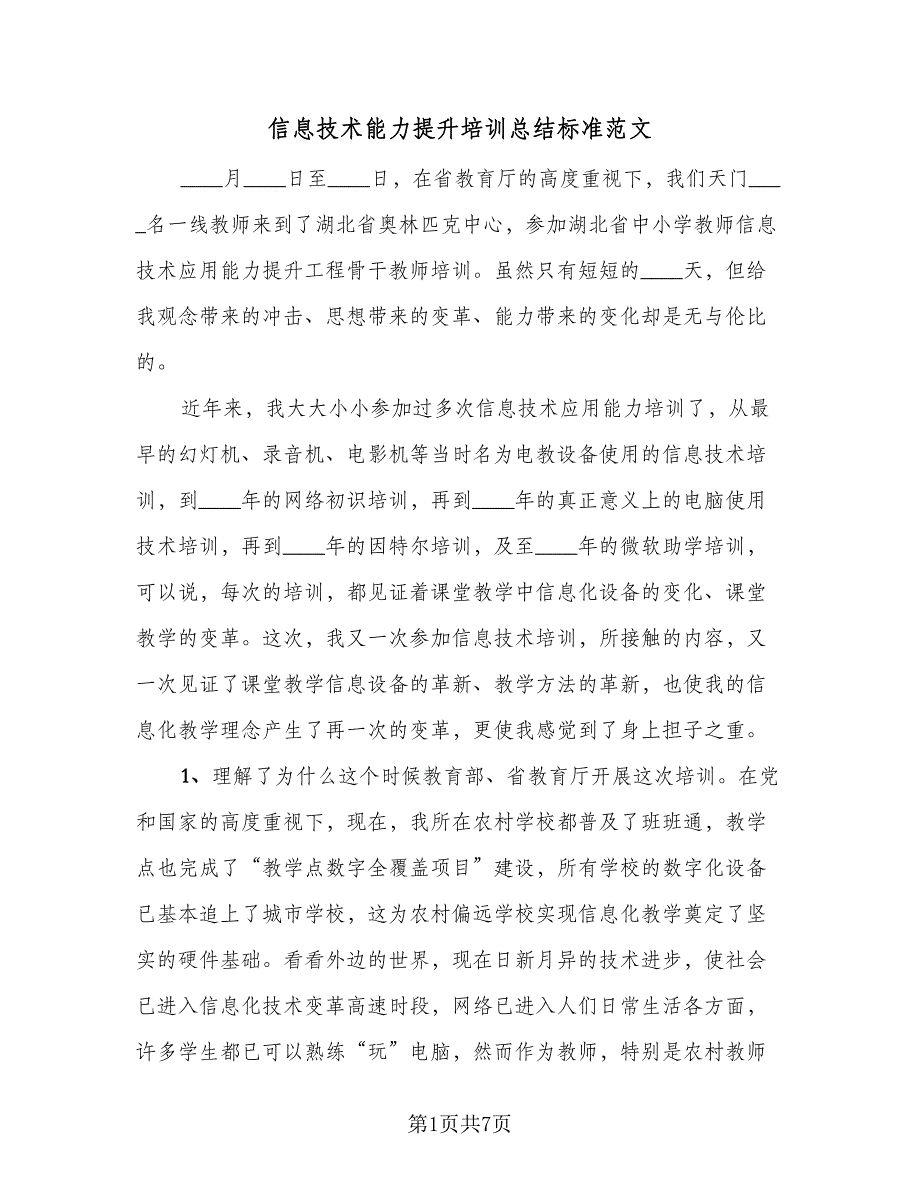 信息技术能力提升培训总结标准范文
____月____日至____日，在省教育厅的高度重视下，我们天门___
_名一线教师来到了湖北省奥林匹克中心，参加湖北省中小学教师信息
技术应用能力提升工程骨干教师培训。虽然只有短短的____天，但给
我观念带来的冲击、思想带来的变革、能力带来的变化却是无与伦比
的。
近年来，我大大小小参加过多次信息技术应用能力培训了，从最
早的幻灯机、录音机、电影机等当时名为电教设备使用的信息技术培
训，到____年的网络初识培训，再到____年的真正意义上的电脑使用
技术培训，再到____年的因特尔培训，及至____年的微软助学培训，
可以说，每次的培训，都见证着课堂教学中信息化设备的变化、课堂
教学的变革。这次，我又一次参加信息技术培训，所接触的内容，又
一次见证了课堂教学信息设备的革新、教学方法的革新，也使我的信
息化教学理念产生了再一次的变革，更使我感觉到了身上担子之重。
1、理解了为什么这个时候教育部、省教育厅开展这次培训。在党
和国家的高度重视下，现在，我所在农村学校都普及了班班通，教学
点也完成了“教学点数字全覆盖项目”建设，所有学校的数字化设备
已基本追上了城市学校，这为农村偏远学校实现信息化教学奠定了坚
实的硬件基础。看看外边的世界，现在日新月异的技术进步，使社会
已进入信息化技术变革高速时段，网络已进入人们日常生活各方面，
许多学生都已可以熟练“玩”电脑，然而作为教师，特别是农村教师
第1页共7页